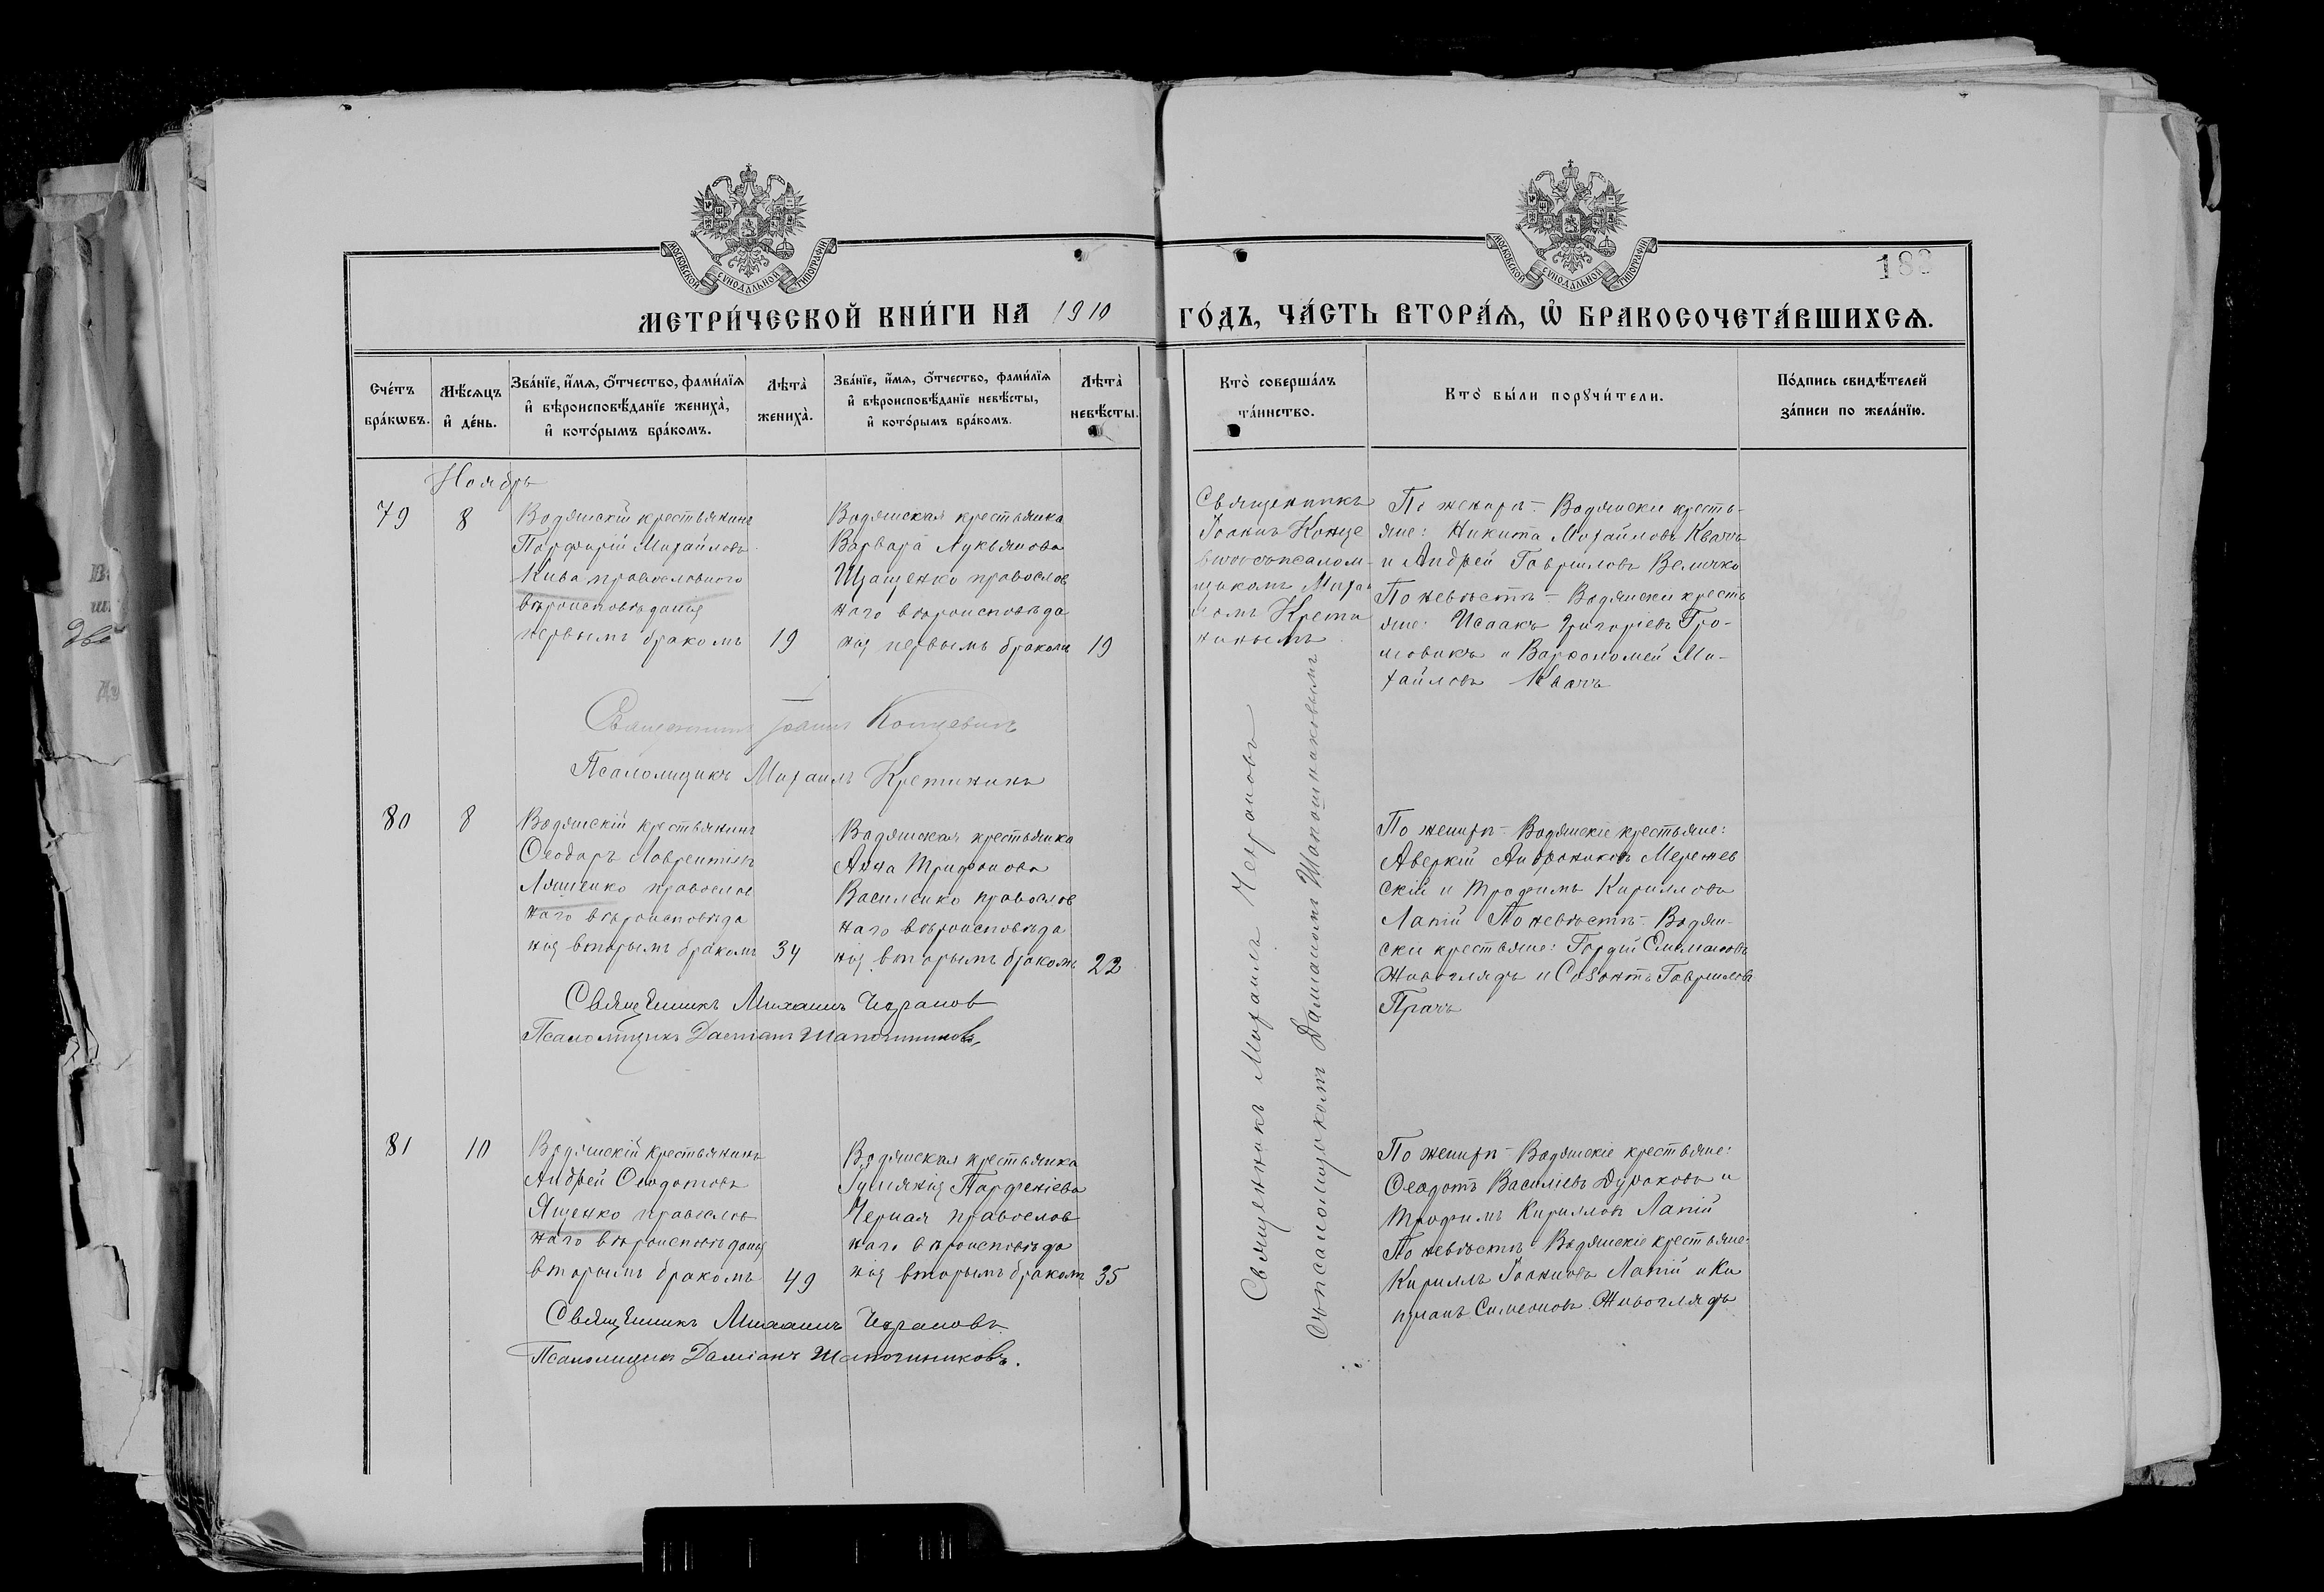 МОСКОВСКОЙ СУНОДАЛЬНОЙ ТИПОГРАФІИ
МОСКОВСКОЙ СУНОДАЛЬНОЙ ТИПОГРАФІИ
МЕТРИ́ЧЕСКОЙ КНИ́ГИ НА 1910
ГО́ДЪ, ЧА́СТЬ ВТОРА́Я, Ѡ҆ БРАКОСОЧЕТА́ВШИХСЯ.
Сче́тъ бра́кѡвъ.
Мѣ́сяцъ и҆ де́нь.
Зва́нїе, и҆́мя, ѻ҆́тчество, фами́лїя
и҆ вѣроисповѣ́данїе жениха̀,
и҆ кото́рымъ бра́комъ.
Лѣта̀ жениха̀.
Зва́нїе, и҆́мя, ѻ҆́тчество, фами́лїя
и҆ вѣроисповѣ́данїе невѣ́сты,
и҆ кото́рымъ бра́комъ.
Лѣта̀ невѣ́сты.
Кто̀ соверша́лъ
та́инство.
Кто̀ бы́ли порꙋчи́тели.
По́дпись свидѣ́телей
за́писи по жела́нїю.
Ноябрь
79
8
Водянскій крестьянинъ
Порфирій Михайловъ
Кива православного
вѣроисповѣданія
первымъ бракомъ 19
Водянская крестьянка
Варвара Лукьянова
Щащенко православ
наго вѣроисповѣда
нія первымъ бракомъ 19
Священникъ
Іоаннъ Конце
вичъ съ псалом-
щикомъ Миха
иломъ Крети
нинымъ
По жениху - Водянскіи кресть-
яне: Никита Михайловъ Квачъ
и Андрей Гавриловъ Величко
По невѣстѣ - Водянскіи кресть
яне: Исаакъ Григоріевъ Гро-
мовикъ и Варфоломей Ми-
хайловъ Квачъ
Священникъ Іоаннъ Концевичъ
Псаломщикъ Михаилъ Кретининъ
80
8
Водянскій крестьянинъ
Ѳеодоръ Лаврентіевъ
Ляшенко православ
наго вѣроисповѣда
нія вторымъ бракомъ 34
Водянская крестьянка
Анна Трифонова
Василенко православ
наго вѣроисповѣда
нія вторымъ бракомъ 22
По жениху - Водянскіе крестьяне:
Аверкій Андрониковъ Мережев
скій и Трофимъ Кирилловъ
Лапій По невѣстѣ - Водян-
ски крестьяне: Гордій
Живоглядъ и Созонтъ Гавриловъ
Прачъ
Священникъ Михаилъ
Псаломщикъ Даміанъ Шапошниковъ.
Священникъ Михаилъ
съ псаломщикомъ Даміаномъ Шапошниковымъ
81
10
Водянскій крестьянинъ
Андрей Ѳеодотовъ
Ященко православ
наго вѣроисповѣданія
вторымъ бракомъ 49
Водянская крестьянка
Іуліянія Парфеніева
Черная православ
наго вѣроисповѣда
нія вторымъ бракомъ 35
По жениху - Водянскіе крестьяне:
Ѳеодотъ Василіевъ и
Трофимъ Кирилловъ Лапій
По невѣстѣ - Водянскіе крестьяне:
Кириллъ Іоанновъ Лапій и Ки
пріанъ Симеоновъ Живоглядъ
Священникъ Михаилъ
Псаломщикъ Даміанъ Шапошниковъ.